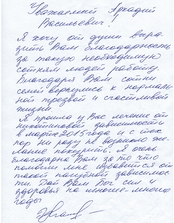 Уважаемый Аркадий
Васильевич!
Я хочу от души выра
зить Вам благодарность
за такую необходимую
сотням людей работу.
Благодаря Вам сотни
семей вернулись к нормаль
ной трезвой и счастливой
жизни.
Я прошла у Вас лечение от
зависимости
в марте 2015 года и с тех
пор ни разу не возникло же
лание покурить. Я очень
благодарна Вам за то что
помогли мне избавится от
такой пагубной зависимос
ти. Дай Вам Бог сил и
здоровья на многие многие
годы!